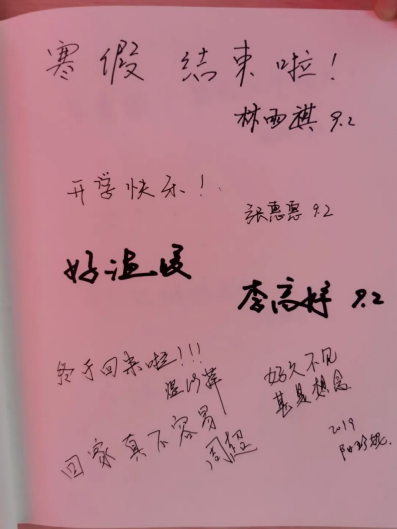 寒假结束啦！
林雨祺 9.2
开学快乐！
张惠惠 9.2
好
李高婷 9.2
终于回来啦！！！
好久不见
甚是想念
回家真不容易
周超
2019